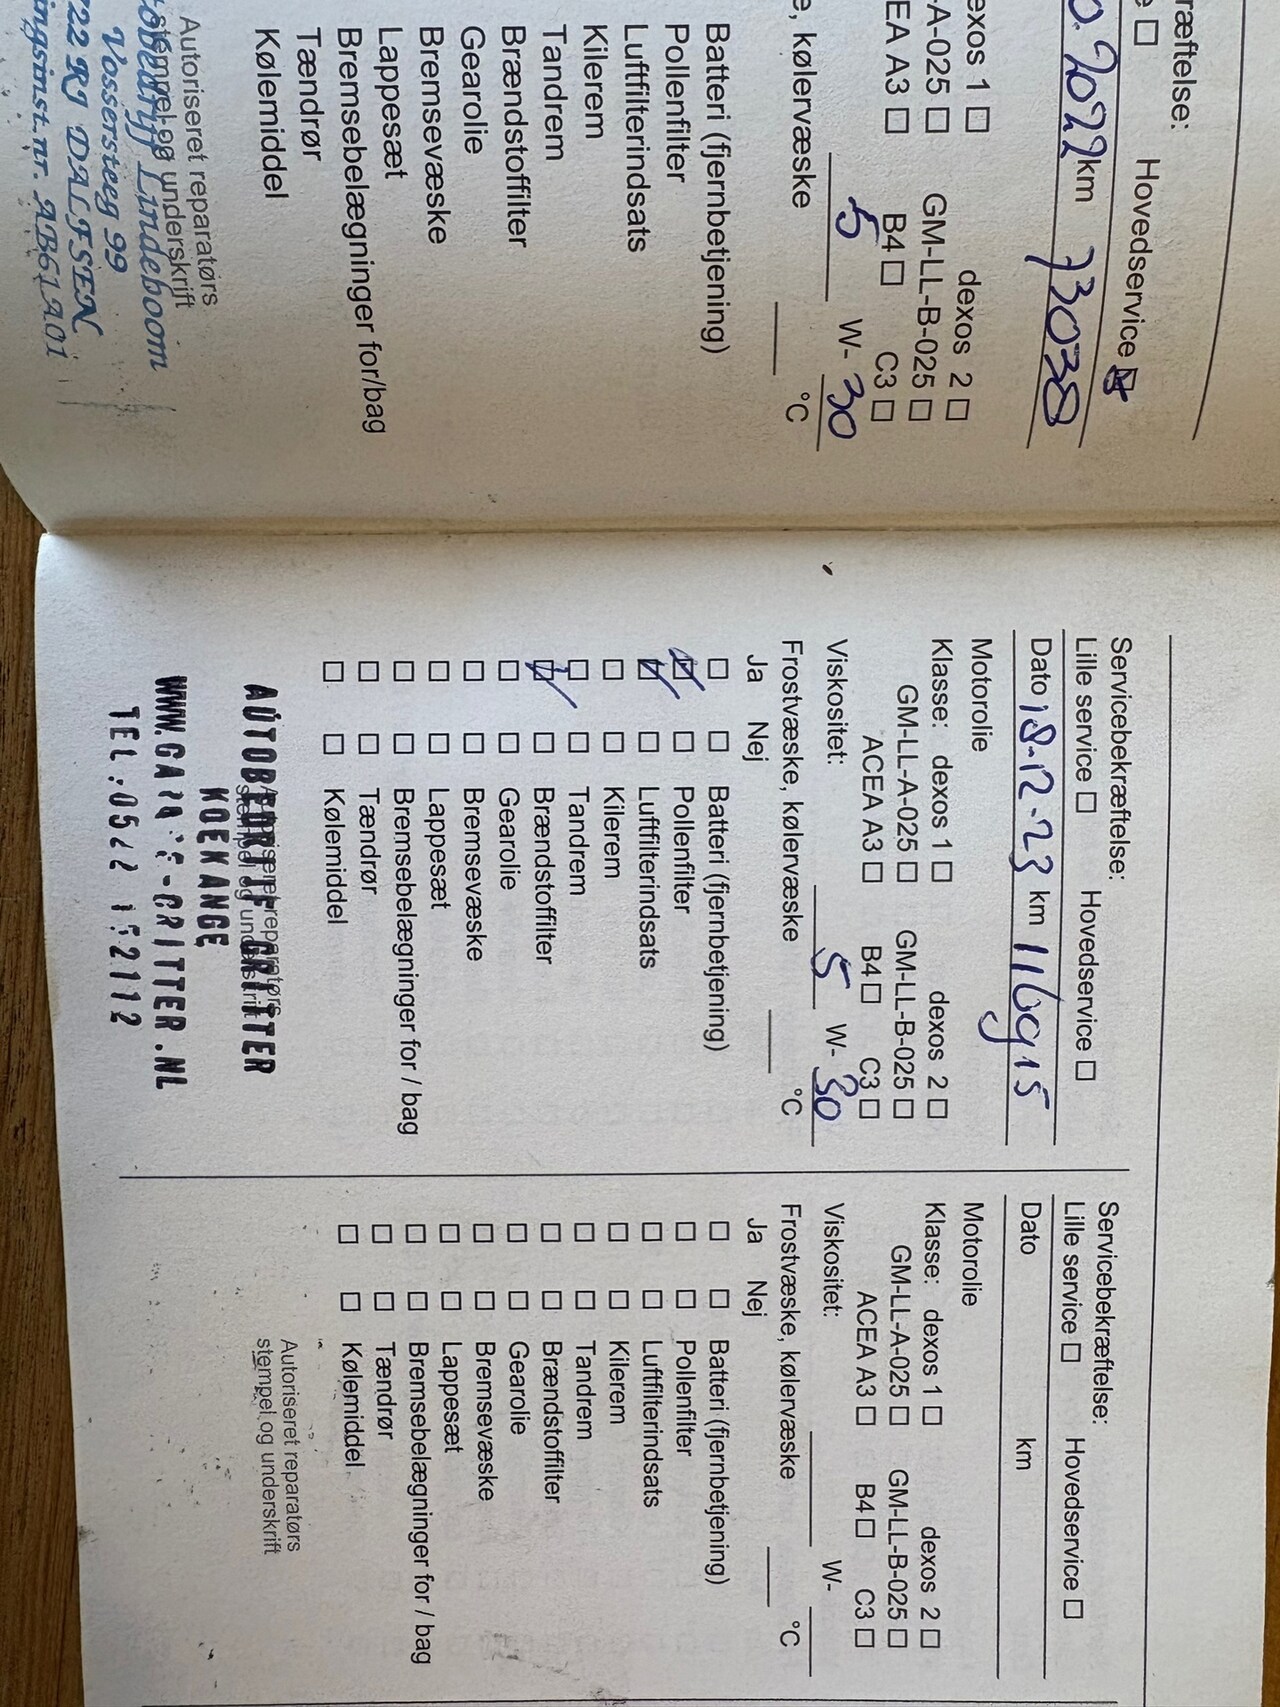 ræftelse:
e ☐ Hovedservice ☑
0.2022 km 73038
exos 1 ☐ dexos 2 ☐
-A-025 ☐ GM-LL-B-025 ☐
EA A3 ☐ B4 ☐ C3 ☐
5 W- 30
e, kølervæske °C
Batteri (fjernbetjening)
Pollenfilter
Luftfilterindsats
Kilerem
Tandrem
Brændstoffilter
Gearolie
Bremsevæske
Lappesæt
Bremsebelægninger for/bag
Tændrør
Kølemiddel
Autoriseret reparatørs
stempel og underskrift
obedrijf Lindeboom
Vossersteeg 99
722 RJ DALFSEN
ingsinst.nr. AB61A01
Servicebekræftelse:
Lille service ☐ Hovedservice ☐
Dato 18-12-23 km 116915
Motorolie
Klasse: dexos 1 ☐ dexos 2 ☐
GM-LL-A-025 ☐ GM-LL-B-025 ☐
ACEA A3 ☐ B4 ☐ C3 ☐
Viskositet: 5 W- 30
Frostvæske, kølervæske °C
Ja Nej
☐ ☐ Batteri (fjernbetjening)
☑ ☐ Pollenfilter
☑ ☐ Luftfilterindsats
☐ ☐ Kilerem
☐ ☐ Tandrem
☑ ☐ Brændstoffilter
☐ ☐ Gearolie
☐ ☐ Bremsevæske
☐ ☐ Lappesæt
☐ ☐ Bremsebelægninger for / bag
☐ ☐ Tændrør
☐ ☐ Kølemiddel
Autoriseret reparatørs
stempel og underskrift
AUTOBEDRIJF GRITTER
KOEKANGE
WWW.GARAGE-GRITTER.NL
TEL.:0522
Servicebekræftelse:
Lille service ☐ Hovedservice ☐
Dato km
Motorolie
Klasse: dexos 1 ☐ dexos 2 ☐
GM-LL-A-025 ☐ GM-LL-B-025 ☐
ACEA A3 ☐ B4 ☐ C3 ☐
Viskositet: W-
Frostvæske, kølervæske °C
Ja Nej
☐ ☐ Batteri (fjernbetjening)
☐ ☐ Pollenfilter
☐ ☐ Luftfilterindsats
☐ ☐ Kilerem
☐ ☐ Tandrem
☐ ☐ Brændstoffilter
☐ ☐ Gearolie
☐ ☐ Bremsevæske
☐ ☐ Lappesæt
☐ ☐ Bremsebelægninger for / bag
☐ ☐ Tændrør
☐ ☐ Kølemiddel
Autoriseret reparatørs
stempel og underskrift